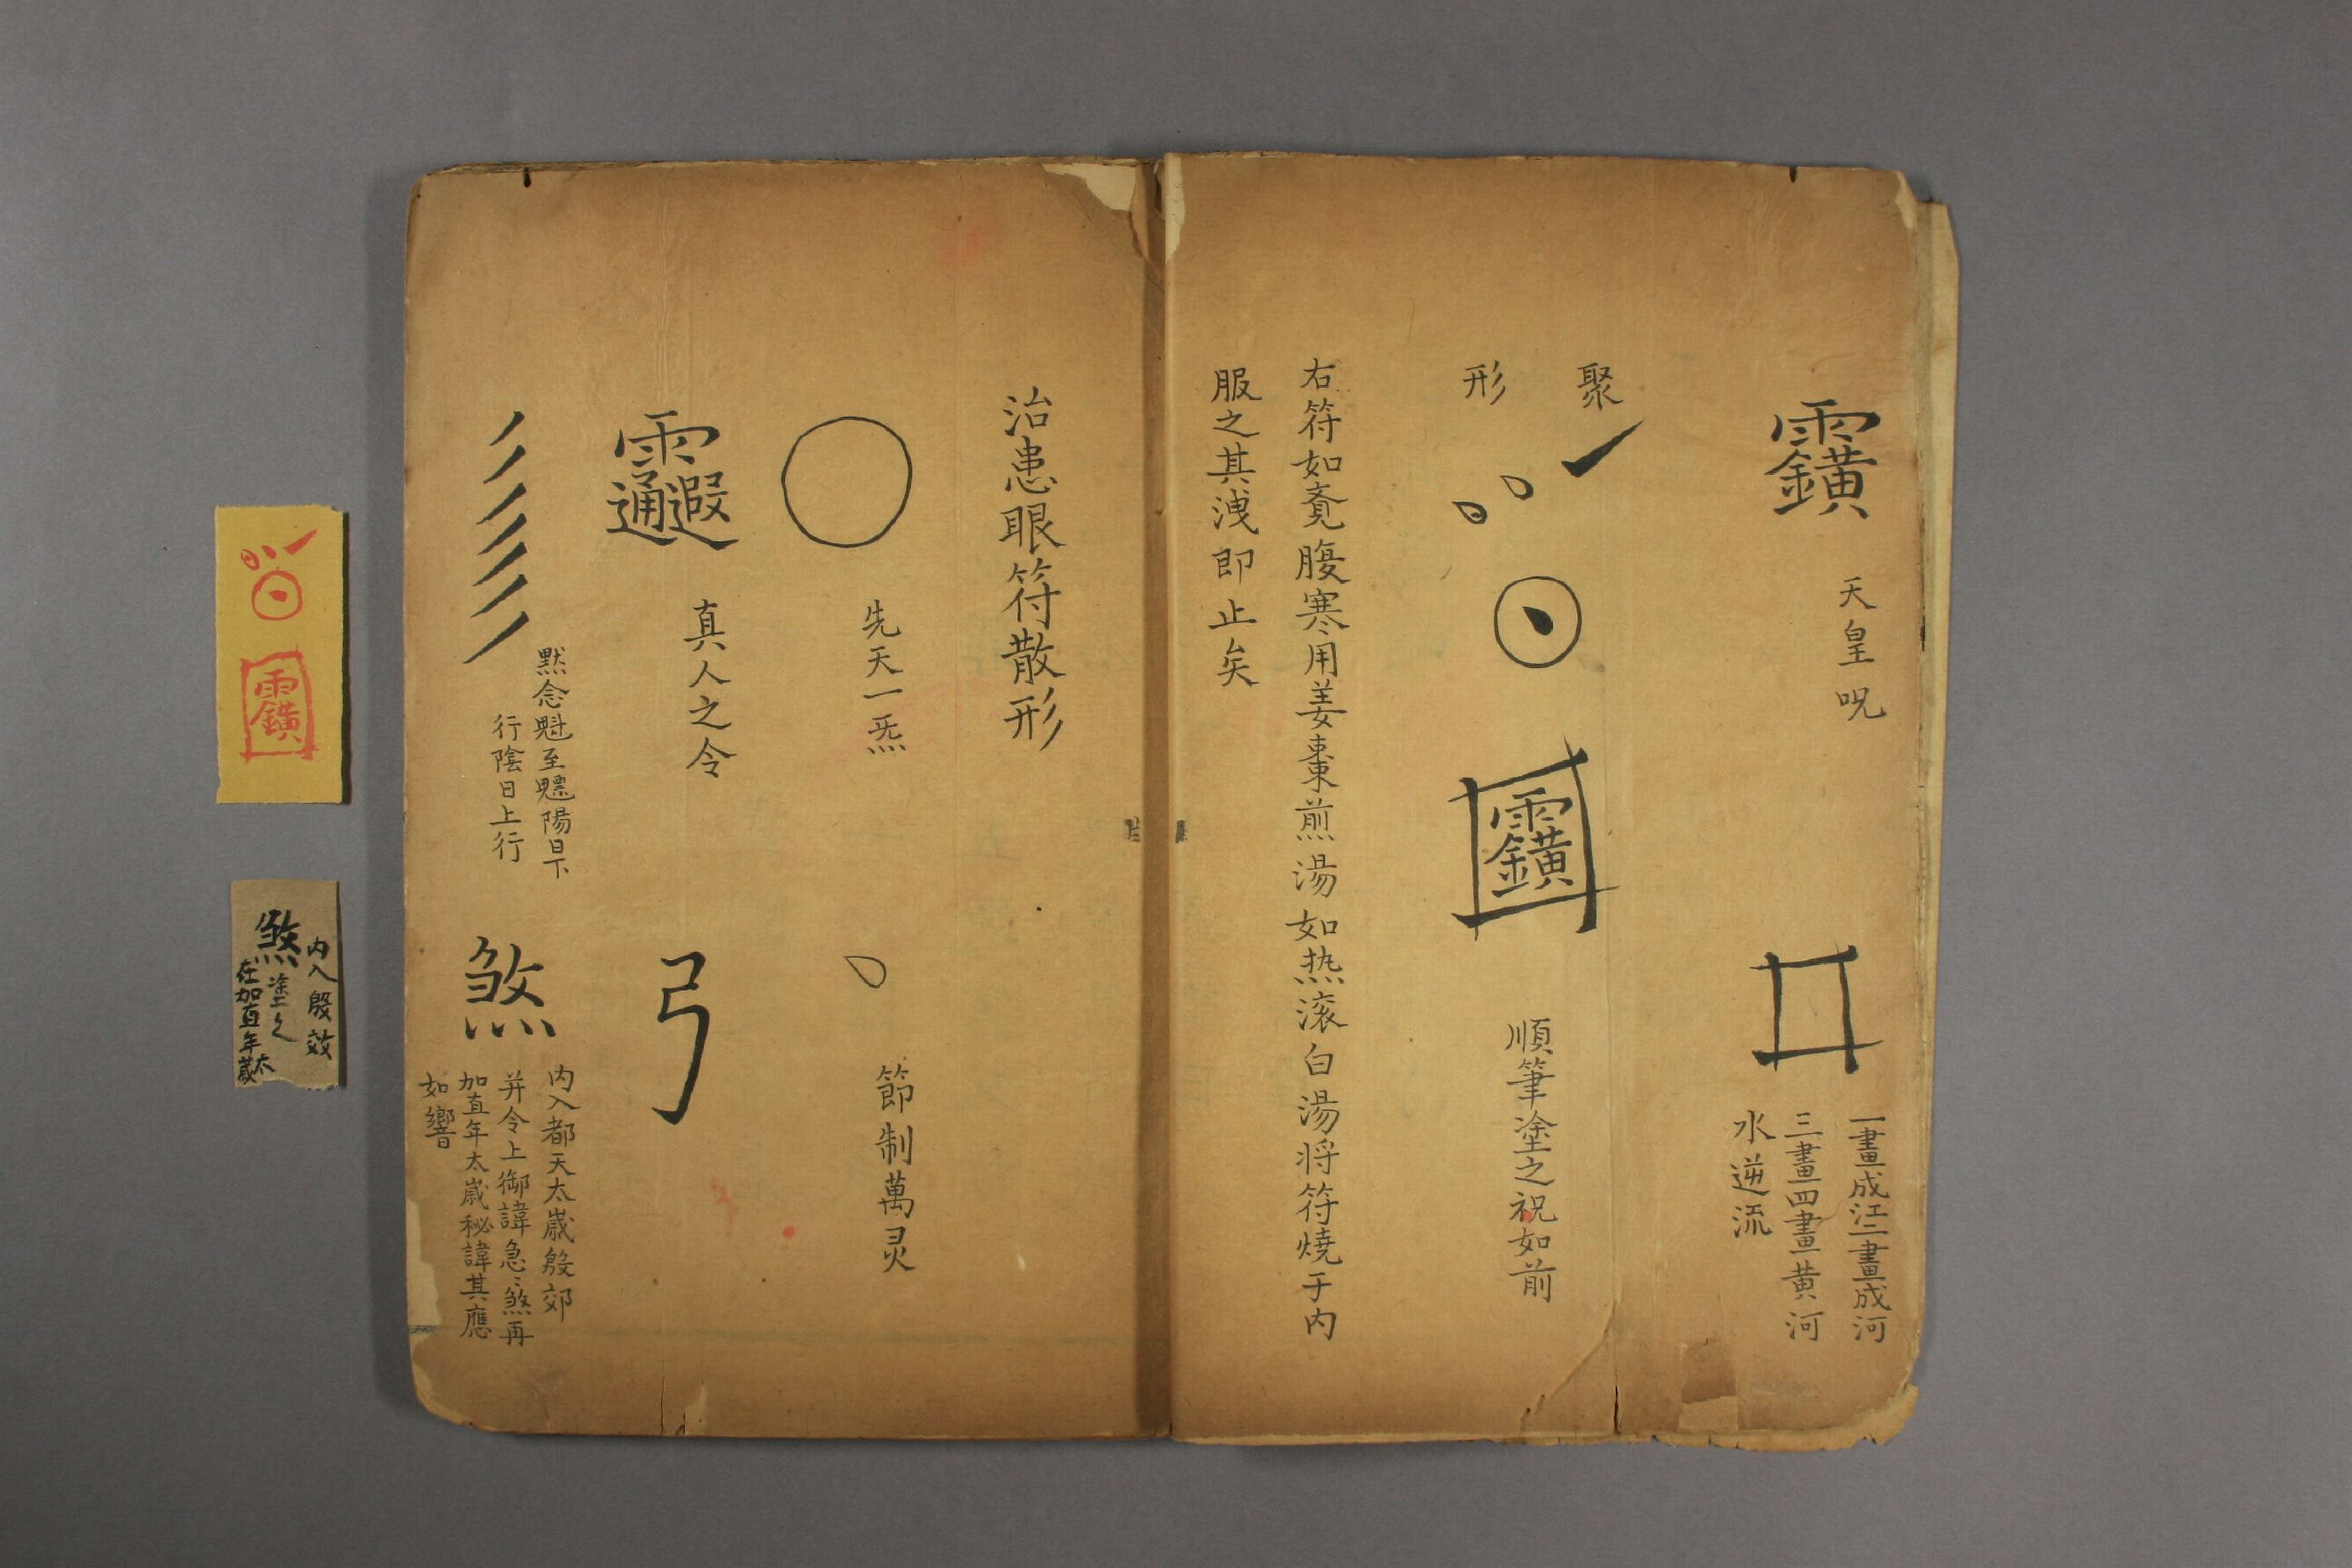 天皇呪
一畫成江二畫成河
三畫四畫黃河
水逆流
聚
形
順筆塗之祝如前
右符如覔腹寒用姜棗煎湯如热滚白湯将符燒于内
服之其洩即止矣
治患眼符散形
先天一炁
節制萬灵
真人之令
弓
黙念魁至魒陽日下
行陰日上行
煞
内入都天太歲殷郊
并令上御諱急〻煞再
加直年太歲秘諱其應
如響
内入殷效
煞塗之
在加直年太歲